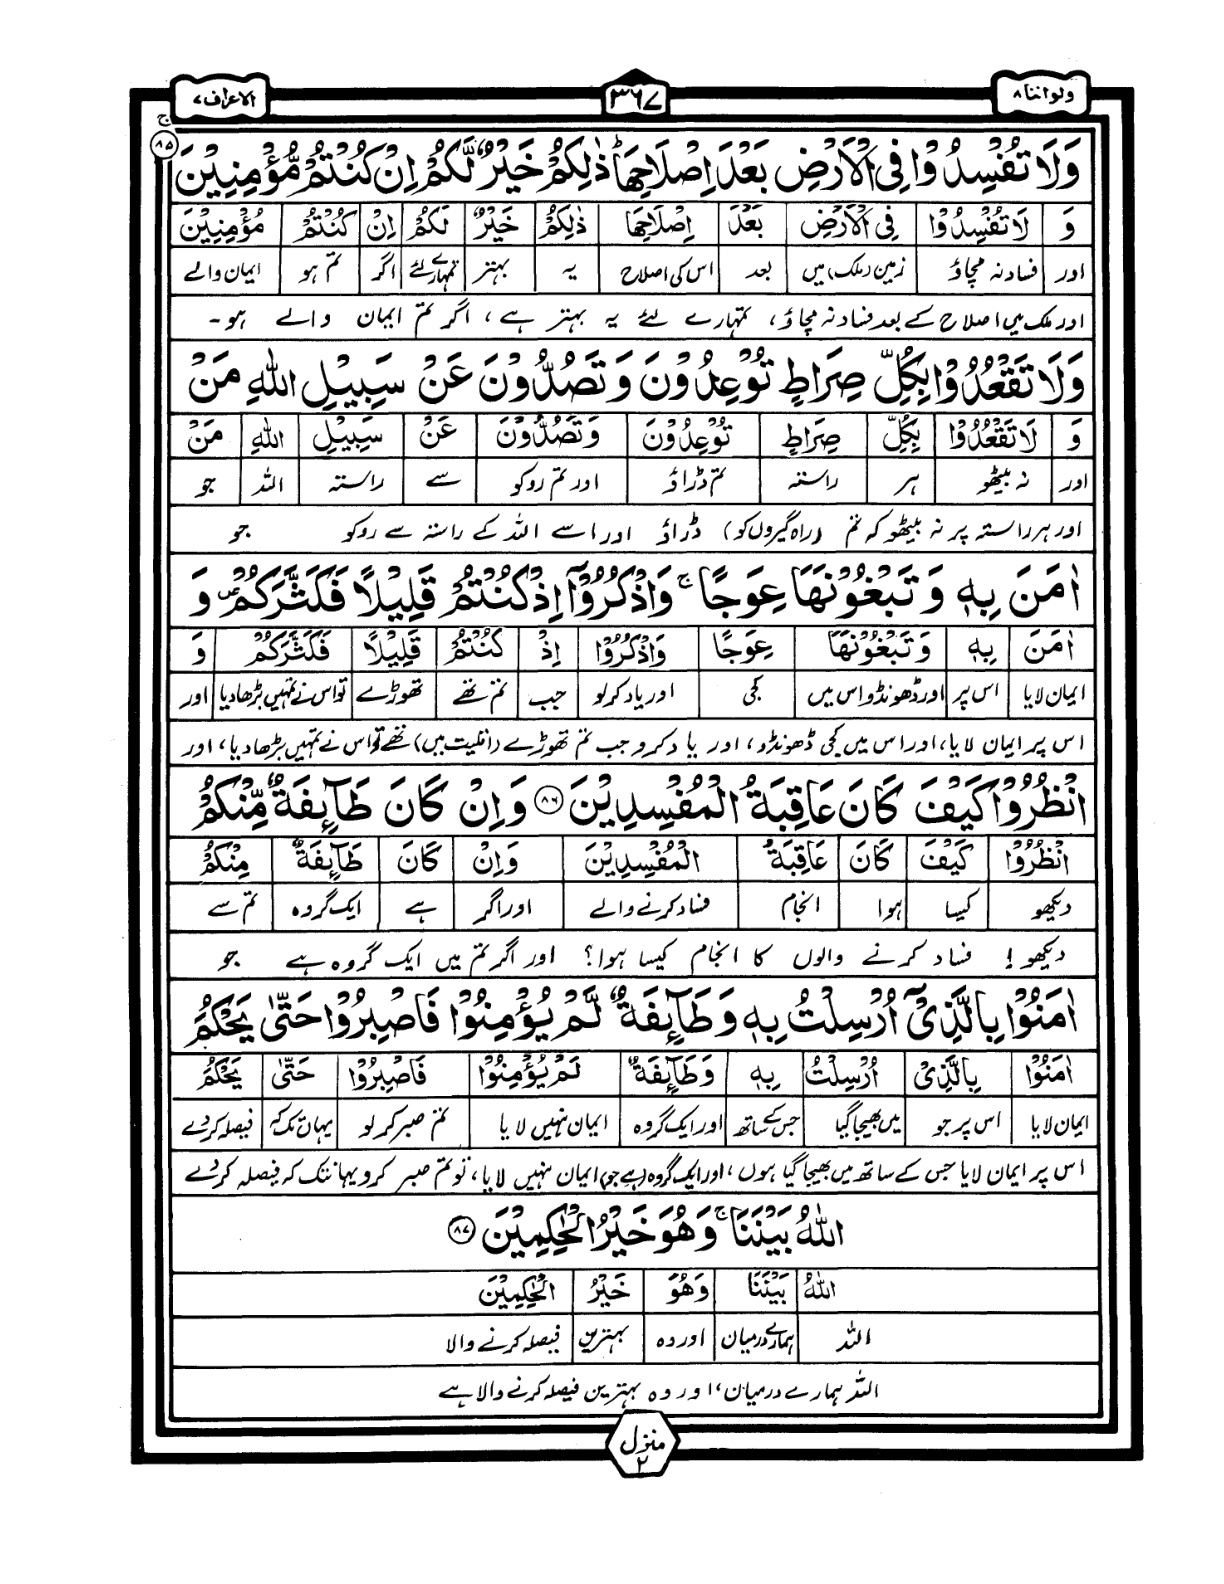 ولواننا ۸
۳۶۷
الاعراف ۷
وَلَا تُفْسِدُوْا فِی الْاَرْضِ بَعْدَ اِصْلَاحِهَا ؕ ذٰلِكُمْ خَیْرٌ لَّكُمْ اِنْ كُنْتُمْ مُّؤْمِنِیْنَ ۸۵ ج
وَ لَا تُفْسِدُوْا فِی الْاَرْضِ بَعْدَ اِصْلَاحِهَا ذٰلِكُمْ خَیْرٌ لَكُمْ اِنْ كُنْتُمْ مُؤْمِنِیْنَ
اور فساد نہ مچاؤ زمین (ملک) میں بعد اس کی اصلاح یہ بہتر تمہارے لئے اگر تم ہو ایمان والے
اور ملک میں اصلاح کے بعد فساد نہ مچاؤ، تمہارے لئے یہ بہتر ہے، اگر تم ایمان والے ہو۔
وَلَا تَقْعُدُوْا بِكُلِّ صِرَاطٍ تُوْعِدُوْنَ وَ تَصُدُّوْنَ عَنْ سَبِیْلِ اللّٰهِ مَنْ
وَ لَا تَقْعُدُوْا بِكُلِّ صِرَاطٍ تُوْعِدُوْنَ وَتَصُدُّوْنَ عَنْ سَبِیْلِ اللّٰهِ مَنْ
اور نہ بیٹھو ہر راستہ تم ڈراؤ اور تم روکو سے راستہ اللہ جو
اور ہر راستہ پر نہ بیٹھو کہ تم (راہ گیروں کو) ڈراؤ اور اسے اللہ کے راستہ سے روکو جو
اٰمَنَ بِهٖ وَ تَبْغُوْنَهَا عِوَجًا ۚ وَاذْكُرُوْۤا اِذْ كُنْتُمْ قَلِیْلًا فَكَثَّرَكُمْ ۪ وَ
اٰمَنَ بِهٖ وَ تَبْغُوْنَهَا عِوَجًا وَاذْكُرُوْا اِذْ كُنْتُمْ قَلِیْلًا فَكَثَّرَكُمْ وَ
ایمان لایا اس پر اور ڈھونڈو اس میں کجی اور یاد کرلو جب تم تھے تھوڑے تو اس نے تمہیں بڑھا دیا اور
اس پر ایمان لایا، اور اس میں کجی ڈھونڈو، اور یاد کرو جب تم تھوڑے (اقلیت میں) تھے تو اس نے تمہیں بڑھا دیا، اور
انْظُرُوْا كَیْفَ كَانَ عَاقِبَةُ الْمُفْسِدِیْنَ ۸۶ وَ اِنْ كَانَ طَآىِٕفَةٌ مِّنْكُمْ
انْظُرُوْا كَیْفَ كَانَ عَاقِبَةُ الْمُفْسِدِیْنَ وَاِنْ كَانَ طَآىِٕفَةٌ مِنْكُمْ
دیکھو کیسا ہوا انجام فساد کرنے والے اور اگر ہے ایک گروہ تم سے
دیکھو! فساد کرنے والوں کا انجام کیسا ہوا؟ اور اگر تم میں ایک گروہ ہے جو
اٰمَنُوْا بِالَّذِیْۤ اُرْسِلْتُ بِهٖ وَ طَآىِٕفَةٌ لَّمْ یُؤْمِنُوْا فَاصْبِرُوْا حَتّٰی یَحْكُمَ
اٰمَنُوْا بِالَّذِیْ اُرْسِلْتُ بِهٖ وَطَآىِٕفَةٌ لَمْ یُؤْمِنُوْا فَاصْبِرُوْا حَتّٰی یَحْكُمَ
ایمان لایا اس پر جو میں بھیجا گیا جس کے ساتھ اور ایک گروہ ایمان نہیں لایا تم صبر کر لو یہاں تک کہ فیصلہ کردے
اس پر ایمان لایا جس کے ساتھ میں بھیجا گیا ہوں، اور ایک گروہ (ہے جو) ایمان نہیں لایا، تو تم صبر کرو یہانتک کہ فیصلہ کردے
اللّٰهُ بَیْنَنَا ۚ وَهُوَ خَیْرُ الْحٰكِمِیْنَ ۸۷
اللّٰهُ بَیْنَنَا وَهُوَ خَیْرُ الْحٰكِمِیْنَ
اللہ ہمارے درمیان اور وہ بہترین فیصلہ کرنے والا
اللہ ہمارے درمیان، اور وہ بہترین فیصلہ کرنے والا ہے
منزل ۲